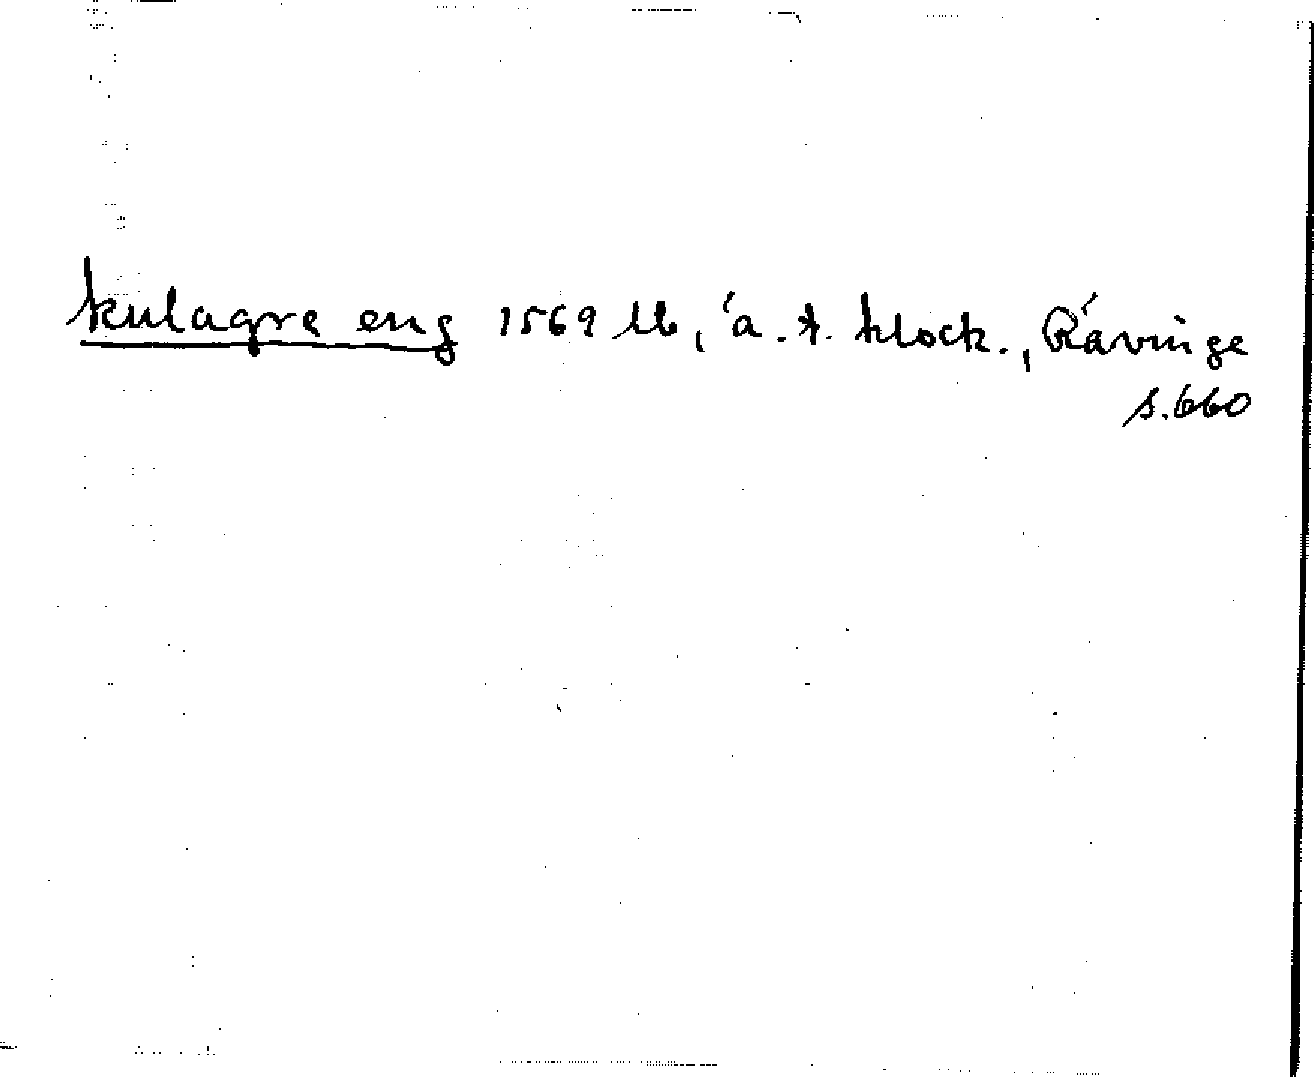 kulagre eng 1569 Lb, 'a. t. klock., Rávinge
s. 660